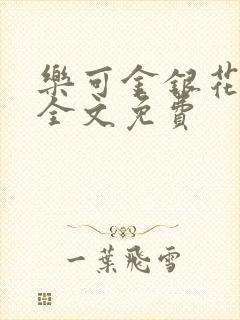 樂可金銀花
全文免費
一葉飛雪